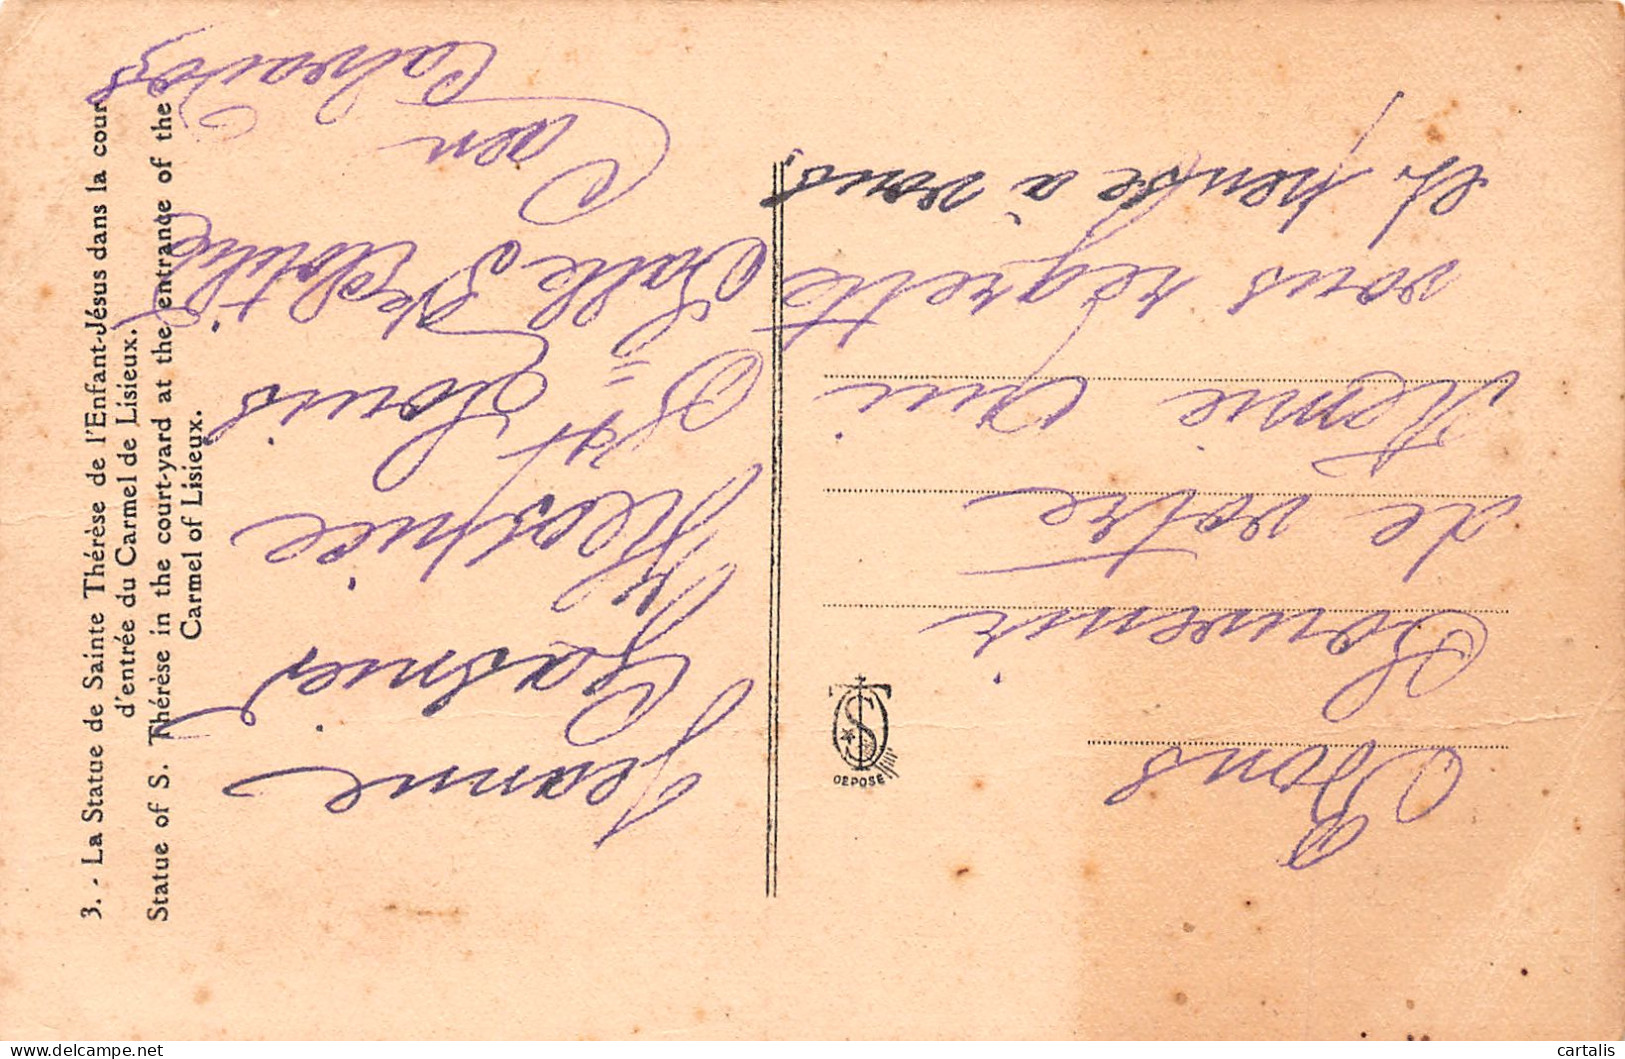 3. - La Statue de Sainte Thérèse de l'Enfant-Jésus dans la cour
d'entrée du Carmel de Lisieux.
Statue of S. Thérèse in the court-yard at the entrance of the
Carmel of Lisieux.
DEPOSE
Bons
Souvenir
de votre
qui
vous regrette
et pense à vous!
Jeanne
Gasnier
Hospice
St Louis
Salle Ste Clotilde
Caen
Calvados
cartalis
delcampe.net